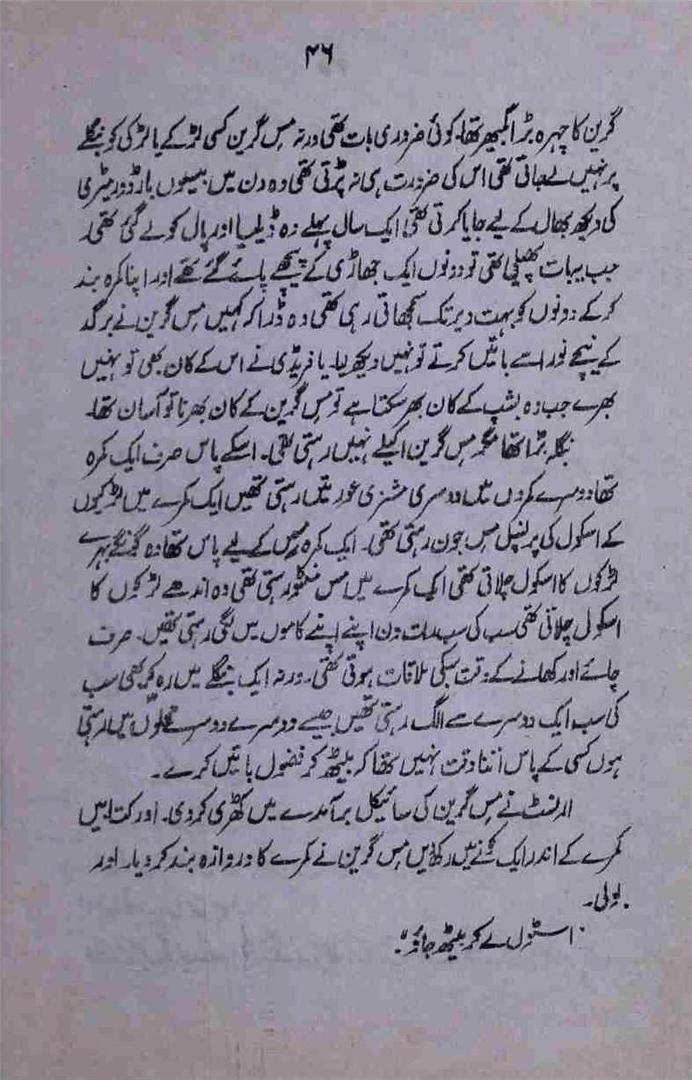 ۴۶
گرین کا چہرہ بڑا گمبھیر تھا۔ کوئی ضروری بات تھی ورنہ مس گرین کسی لڑکے یا لڑکی کو بنگلے
پر نہیں لے جاتی تھی اس کی ضرورت ہی نہ پڑتی تھی وہ دن میں بیسیوں بار ڈورمیٹری
کی دیکھ بھال کے لیے جایا کرتی تھی ایک سال پہلے وہ ڈیلیا اور پال کو لے گئی تھی۔
جب یہ بات پھیلی تھی تو دونوں ایک جھاڑی کے پیچھے پائے گئے تھے اور اپنا کمرہ بند
کر کے دونوں کو بہت دیر تک سمجھاتی رہی تھی وہ ڈرا کہ کہیں مس گرین نے برگد
کے نیچے نورا سے باتیں کرتے تو نہیں دیکھ لیا۔ یا فریڈی نے اس کے کان بھی تو نہیں
بھرے جب وہ بشپ کے کان بھر سکتا ہے تو مس گرین کے کان بھرنا تو آسان تھا۔
بنگلہ بڑا تھا مگر مس گرین اکیلے نہیں رہتی تھی۔ اسکے پاس صرف ایک کمرہ
تھا دوسرے کمروں میں دوسری مشنری عورتیں رہتی تھیں ایک کمرے میں لڑکیوں
کے اسکول کی پرنسپل مس جون رہتی تھی۔ ایک کمرہ مس کے لیے پاس تھا وہ گونگے بہرے
لڑکوں کا اسکول چلاتی تھی ایک کمرے میں مس رہتی تھی وہ اندھے لڑکوں کا
اسکول چلاتی تھی سب کی سب رات دن اپنے اپنے کاموں میں لگی رہتی تھیں۔ صرف
چائے اور کھانے کے وقت سبکی ملاقات ہوتی تھی۔ ورنہ ایک بنگلے میں رہ کر بھی سب
کی سب ایک دوسرے سے الگ رہتی تھیں جیسے دوسرے دوسرے محلوں میں رہتی
ہوں کسی کے پاس اتنا وقت نہیں تھا کہ بیٹھ کر فضول باتیں کرے۔
ارنسٹ نے مس گرین کی سائیکل برآمدے میں کھڑی کر دی۔ اور کتابیں
کمرے کے اندر ایک کونے میں رکھ دیں مس گرین نے کمرے کا دروازہ بند کر دیا۔ اور
بولی۔
"اسٹول لے کر بیٹھ جاؤ"۔